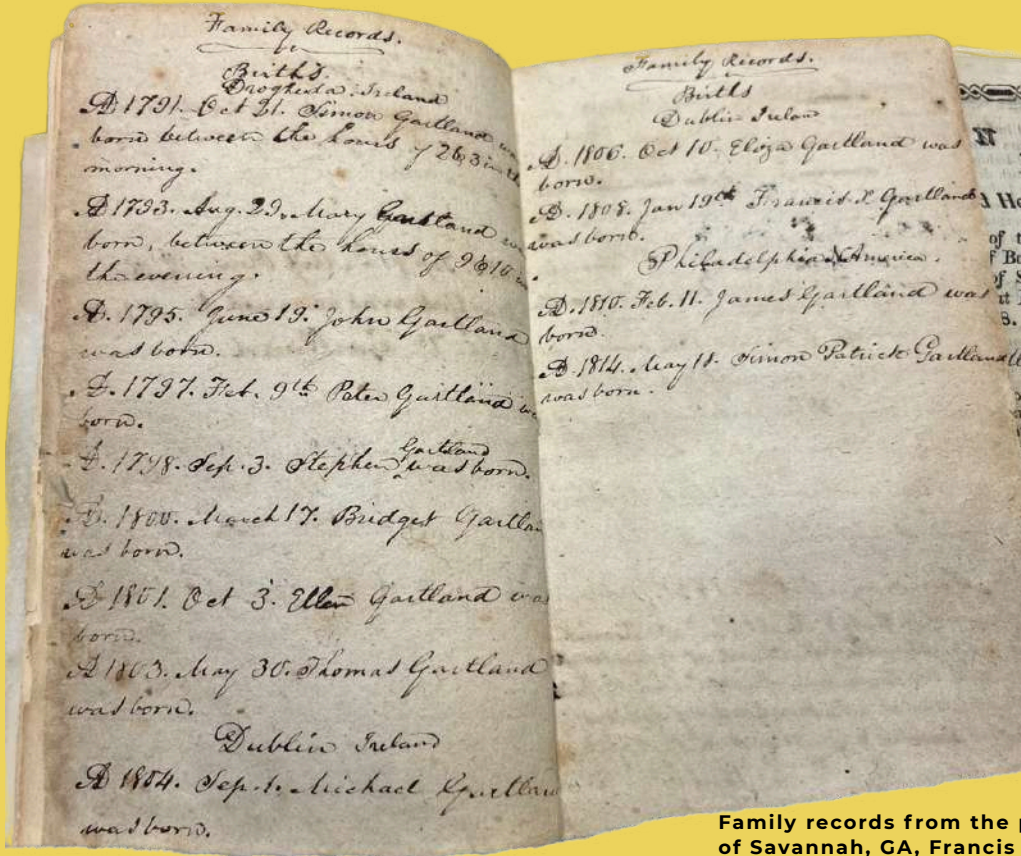 Family Records.
Births.
Drogheda. Ireland
A 1791. Oct 21. Simon Gartland was
born between the hours of 2 & 3 in the
morning.
A 1793. Aug. 29. Mary Gartland
born, between the hours of 9 & 10
the evening.
A. 1795. June 19. John Gartland
was born.
A. 1797. Feb. 9th Peter Gartland
born.
A. 1798. Sep. 3. Stephen Gartland was born.
A. 1800. March 17. Bridget Gartlan
was born.
A 1801. Oct 3. Ellen Gartland was
born.
A 1803. May 30. Thomas Gartland
was born.
Dublin Ireland
A 1804. Sep. 1. Michael Gartlan
was born.
Family Records.
Births
Dublin Irelan
A. 1806. Oct 10. Eliza Gartland was
born.
A. 1808. Jan 19th Francis X Gartland
was born.
Philadelphia America.
A. 1810. Feb. 11. James Gartland was
born.
A. 1814. May 18. Simon Patrick Gartland
was born.
N
d He
of t
f Bo
of S
8.
Family records from the p
of Savannah, GA, Francis